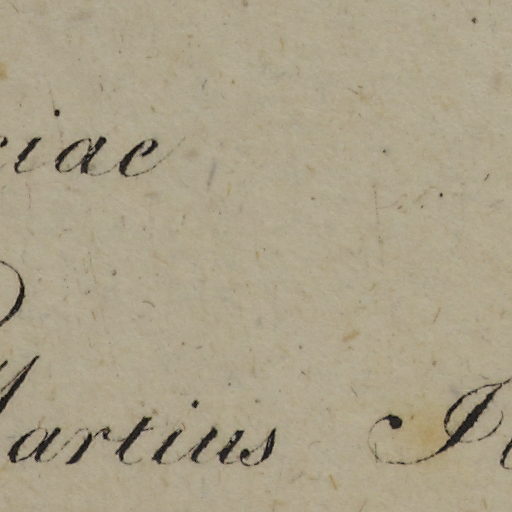 ciae
Martius